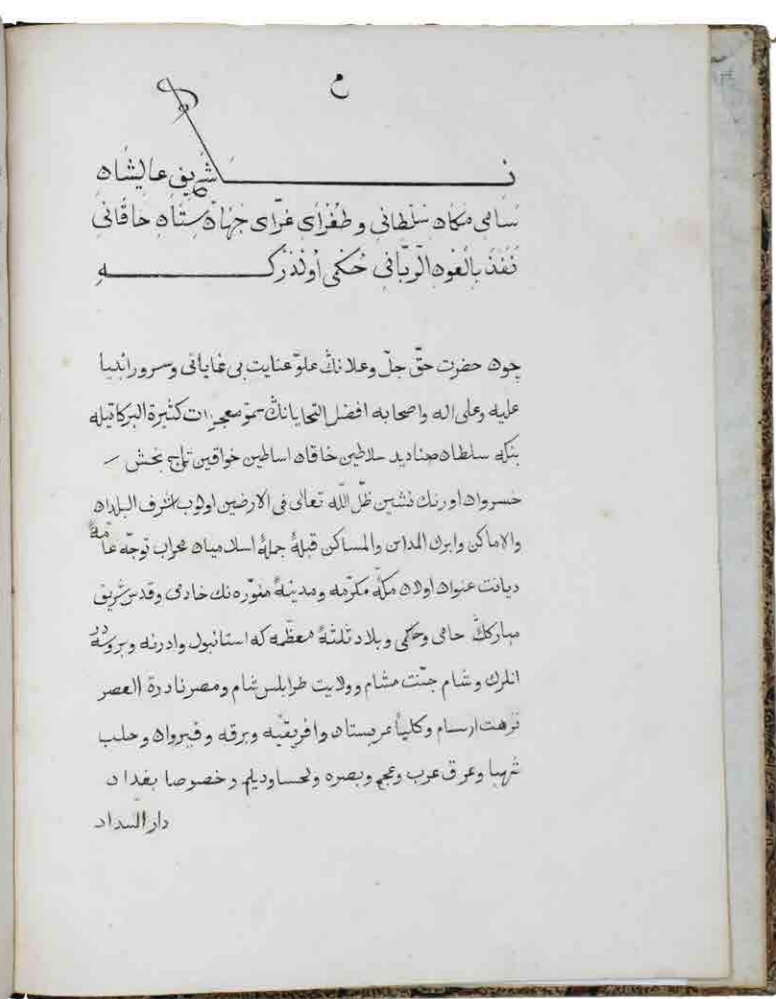 م
نشان شريف عاليشان
سامى مكان سلطانى و طغراى غراى جهان ستان خاقانى
نُفِّذَ بالعون الربانى حكمى اولدركه
چون حضرت حق جلّ وعلانڭ علوّ عنايت بى غاياتى وسرور انبيا
عليه وعلى اله واصحابه افضل التحايانڭ سموّ معجزات كثيرة البركاتيله
بنكه سلطان صناديد سلاطين خاقان اساطين خواقين تاج بخش
خسروان اورنك نشين ظلّ الله تعالى فى الارضين اولوب اشرف البلدان
والاماكن وابرك المداين والمساكن قبلهٔ جملهٔ اسلاميان محراب توجّه عامّهٔ
ديانت عنوان اولان مكّهٔ مكرّمه ومدينهٔ منوّره نك خادمى وقدس شريف
مباركڭ حامى وحاكمى و بلاد ثلثهٔ معظّمه كه استانبول وادرنه و بروسه در
انلرك وشام جنّت مشام و ولايت طرابلس شام ومصر نادرة العصر
نزهت ارسام وكلياً عربستان وافريقيه وبرقه و قيروان وحلب
شهبا وعراق عرب وعجم وبصره ولحسا وديلم وخصوصا بغداد
دار السداد